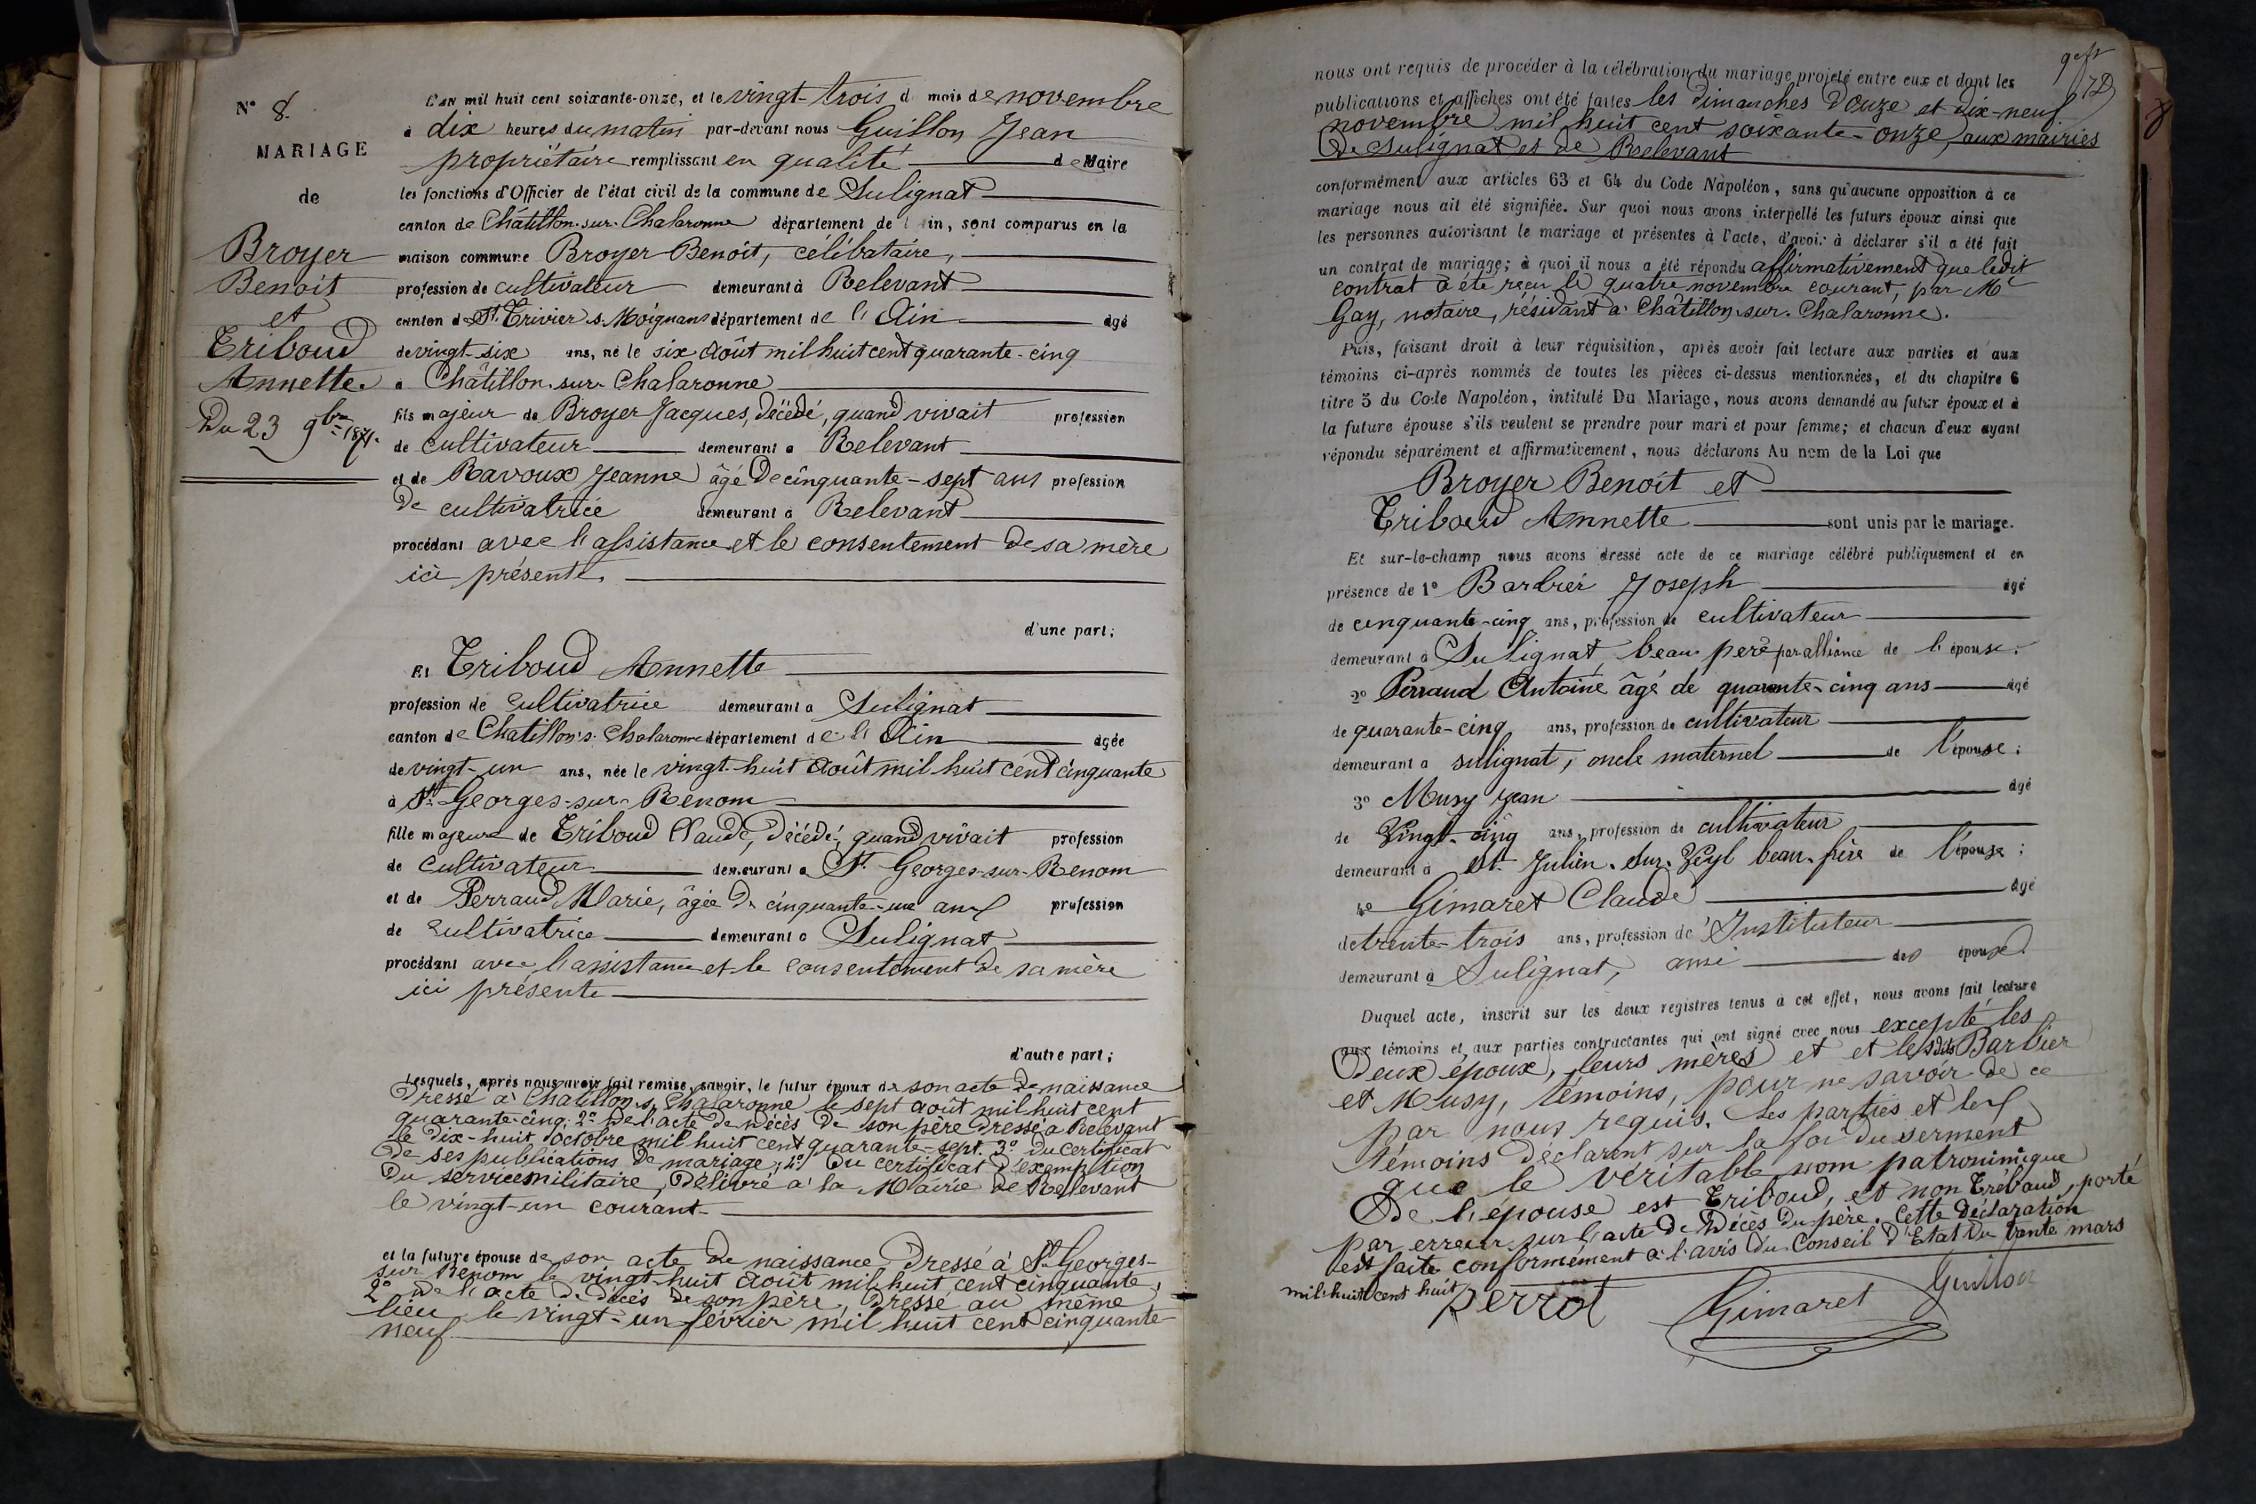 N° 8.
MARIAGE
de
Broyer
Benoit
et
Triboud
Annette.
Du 23 9bre 1871.
L'AN mil huit cent soixante-onze, et le vingt-trois d mois de novembre
à dix heures du matin par-devant nous Guillon Jean
propriétaire remplissant en qualité de Maire
les fonctions d'Officier de l'état civil de la commune de Sulignat
canton de Châtillon-sur-Chalaronne département de l'Ain, sont comparus en la
maison commune Broyer Benoît, célibataire,
profession de cultivateur demeurant à Relevant
canton de St. Trivier s. Moignans département de l'Ain âgé
de vingt-six ans, né le six août mil huit cent quarante-cinq
à Châtillon-sur-Chalaronne
fils majeur de Broyer Jacques, décédé, quand vivait profession
de cultivateur demeurant à Relevant
et de Ravoux Jeanne âgé de cinquante-sept ans profession
de cultivatrice demeurant à Relevant
procédant avec l'assistance et le consentement de sa mère
ici présente.
d'une part;
Et Triboud Annette
profession de cultivatrice demeurant à Sulignat
canton de Chatillon s. Chalaronne département de l'Ain âgée
de vingt-un ans, née le vingt-huit août mil huit cent cinquante
à St. Georges-sur-Renom
fille majeure de Triboud Claude, décédé, quand vivait profession
de cultivateur demeurant à St. Georges-sur-Renom
et de Perraud Marie, âgée de cinquante-un ans profession
de cultivatrice demeurant à Sulignat
procédant avec l'assistance et le consentement de sa mère
ici présente
d'autre part;
Lesquels, après nous avoir fait remise, savoir, le futur époux de son acte de naissance
dressé à Chatillon s. Chalaronne le sept août mil huit cent
quarante-cinq; 2° de l'acte de décès de son père dressé à Relevant
le dix-huit octobre mil huit cent quarante-sept. 3° du certificat
de ses publications de mariage; 4° du certificat d'exemption
du service militaire, délivré à la Mairie de Relevant
le vingt-un courant
et la future épouse de son acte de naissance dressé à St. Georges-
sur Renom le vingt-huit août mil huit cent cinquante,
2° de l'acte de décès de son père, dressé au même
lieu le vingt-un février mil huit cent cinquante
neuf
nous ont requis de procéder à la célébration du mariage projeté entre eux et dont les
publications et affiches ont été faites les dimanches douze et dix-neuf
novembre mil huit cent soixante-onze, aux mairies
de Sulignat et de Relevant
conformément aux articles 63 et 64 du Code Napoléon, sans qu'aucune opposition à ce
mariage nous ait été signifiée. Sur quoi nous avons interpellé les futurs époux ainsi que
les personnes autorisant le mariage et présentes à l'acte, d'avoir à déclarer s'il a été fait
un contrat de mariage; à quoi il nous a été répondu affirmativement que ledit
contrat a été reçu le quatre novembre courant, par Me
Gay, notaire, résidant à Châtillon-sur-Chalaronne.
Puis, faisant droit à leur réquisition, après avoir fait lecture aux parties et aux
témoins ci-après nommés de toutes les pièces ci-dessus mentionnées, et du chapitre 6
titre 5 du Code Napoléon, intitulé Du Mariage, nous avons demandé au futur époux et à
la future épouse s'ils veulent se prendre pour mari et pour femme; et chacun d'eux ayant
répondu séparément et affirmativement, nous déclarons Au nom de la Loi que
Broyer Benoît et
Triboud Annette sont unis par le mariage.
Et sur-le-champ nous avons dressé acte de ce mariage célébré publiquement et en
présence de 1° Barbier Joseph âgé
de cinquante-cinq ans, profession de cultivateur
demeurant à Sulignat, beau père par alliance de l'épouse.
2° Perraud Antoine âgé de quarante-cinq ans âgé
de quarante-cinq ans, profession de cultivateur
demeurant à sulignat, oncle maternel de l'épouse;
3° Musy Jean âgé
de Vingt-cinq ans, profession de cultivateur
demeurant à St. Julien-sur-Veyl beau-frère de l'épouse;
4° Gimaret Claude âgé
de trente-trois ans, profession de Instituteur
demeurant à Sulignat, ami des époux
Duquel acte, inscrit sur les deux registres tenus à cet effet, nous avons fait lecture
aux témoins et aux parties contractantes qui ont signé avec nous excepté les
deux époux, leurs mères et et lesdits Barbier
et Musy, témoins, pour ne savoir de ce
par nous requis. Les parties et les
témoins déclarent sur la foi du serment
que le véritable nom patronimique
de l'épouse est Triboud, et non Trébaud, porté
par erreur sur l'acte de décès du père. Cette déclaration
est faite conformément à l'avis du Conseil d'Etat du trente mars
mil huit cent huit
perrot Gimaret Guillon